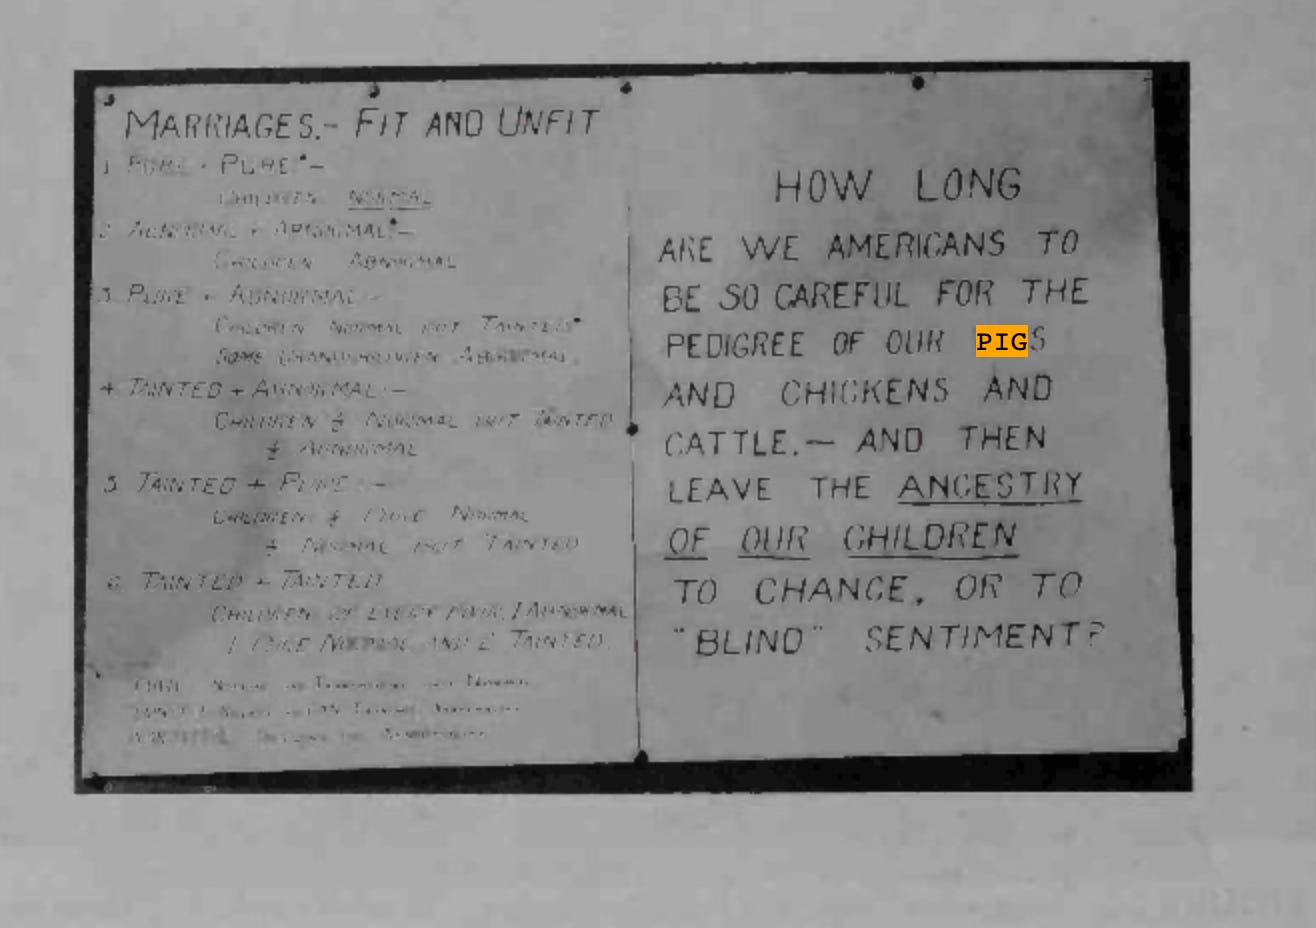 MARRIAGES.- FIT AND UNFIT
1. PURE + PURE:-
CHILDREN NORMAL
2. ABNORMAL + ABNORMAL:-
CHILDREN ABNORMAL
3. PURE + ABNORMAL:-
CHILDREN NORMAL BUT TAINTED
SOME GRANDCHILDREN ABNORMAL.
4. TAINTED + ABNORMAL:-
CHILDREN ½ NORMAL BUT TAINTED
½ ABNORMAL
5. TAINTED + PURE:-
CHILDREN ½ PURE NORMAL
½ NORMAL BUT TAINTED
6. TAINTED + TAINTED
CHILDREN OF EVERY FOUR, 1 ABNORMAL
1 PURE NORMAL AND 2 TAINTED.
HOW LONG
ARE WE AMERICANS TO
BE SO CAREFUL FOR THE
PEDIGREE OF OUR PIGS
AND CHICKENS AND
CATTLE.— AND THEN
LEAVE THE ANCESTRY
OF OUR CHILDREN
TO CHANCE, OR TO
"BLIND" SENTIMENT?